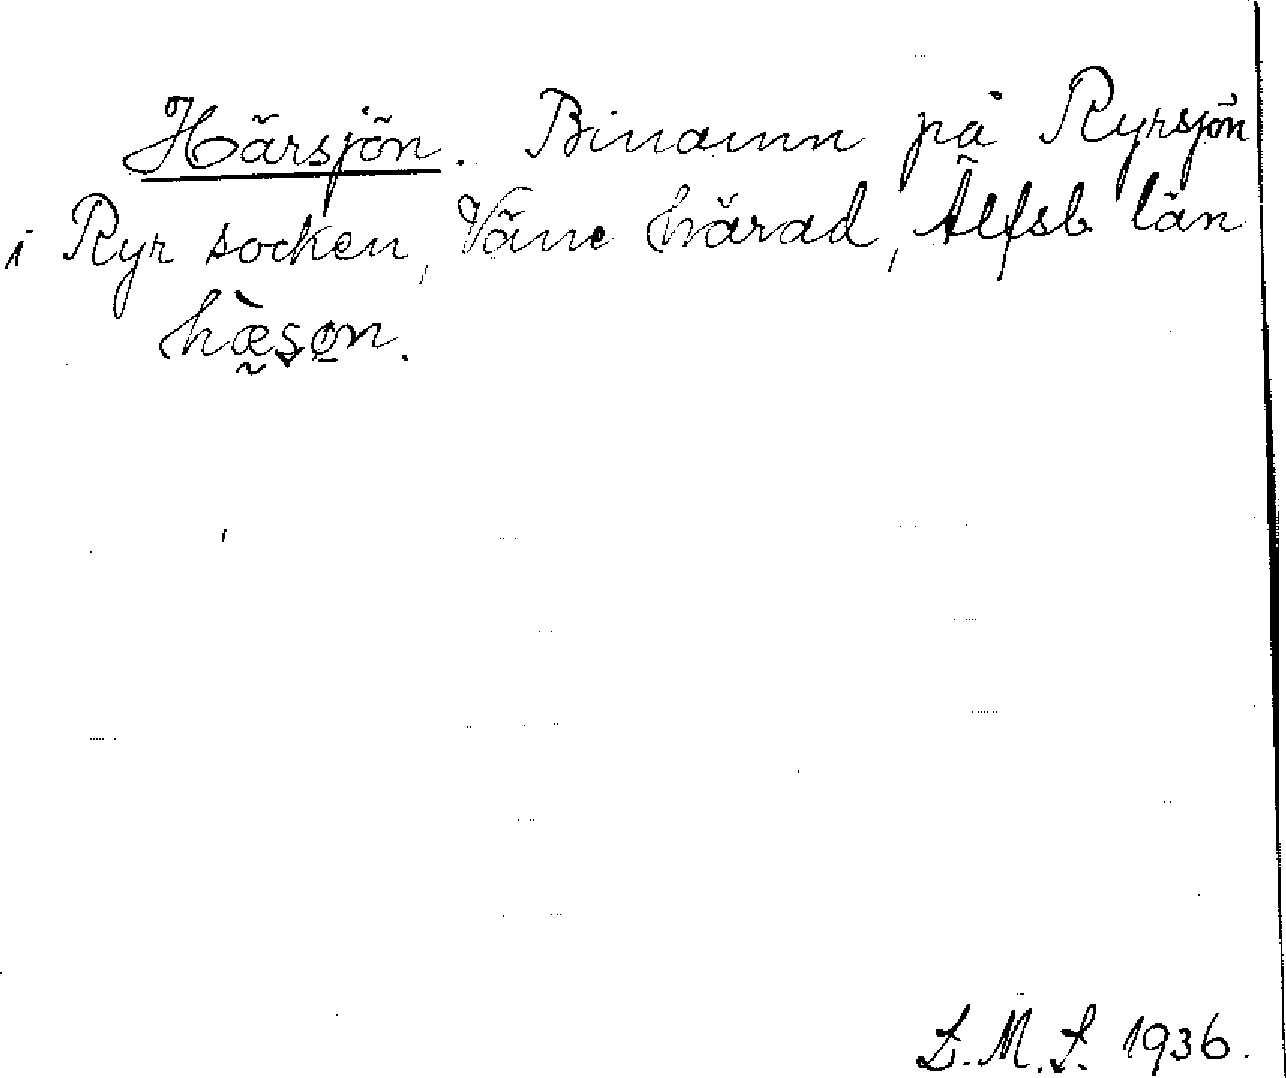 Härsjön. Binamn på Ryrsjön
i Ryr socken, Väne härad, Älfsb län
hæ̀son.
L.M.S. 1936.